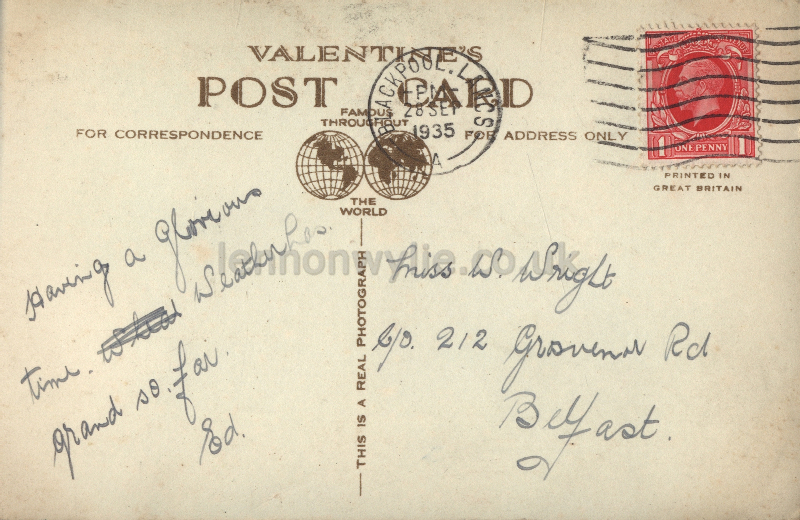 VALENTINE'S
POST CARD
FAMOUS
THROUGHOUT
FOR CORRESPONDENCE
FOR ADDRESS ONLY
THE
WORLD
BLACKPOOL. LANCS
28 SEP
1935
A
1 ONE PENNY 1
PRINTED IN
GREAT BRITAIN
THIS IS A REAL PHOTOGRAPH
lennonwylie.co.uk
Having a Glorious
time. Weather has
grand so far.
Ed.
Miss W. Wright
C/o. 212 Grosvenor Rd
Belfast.